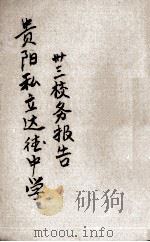 贵阳私立达德中学
卅三校务报告